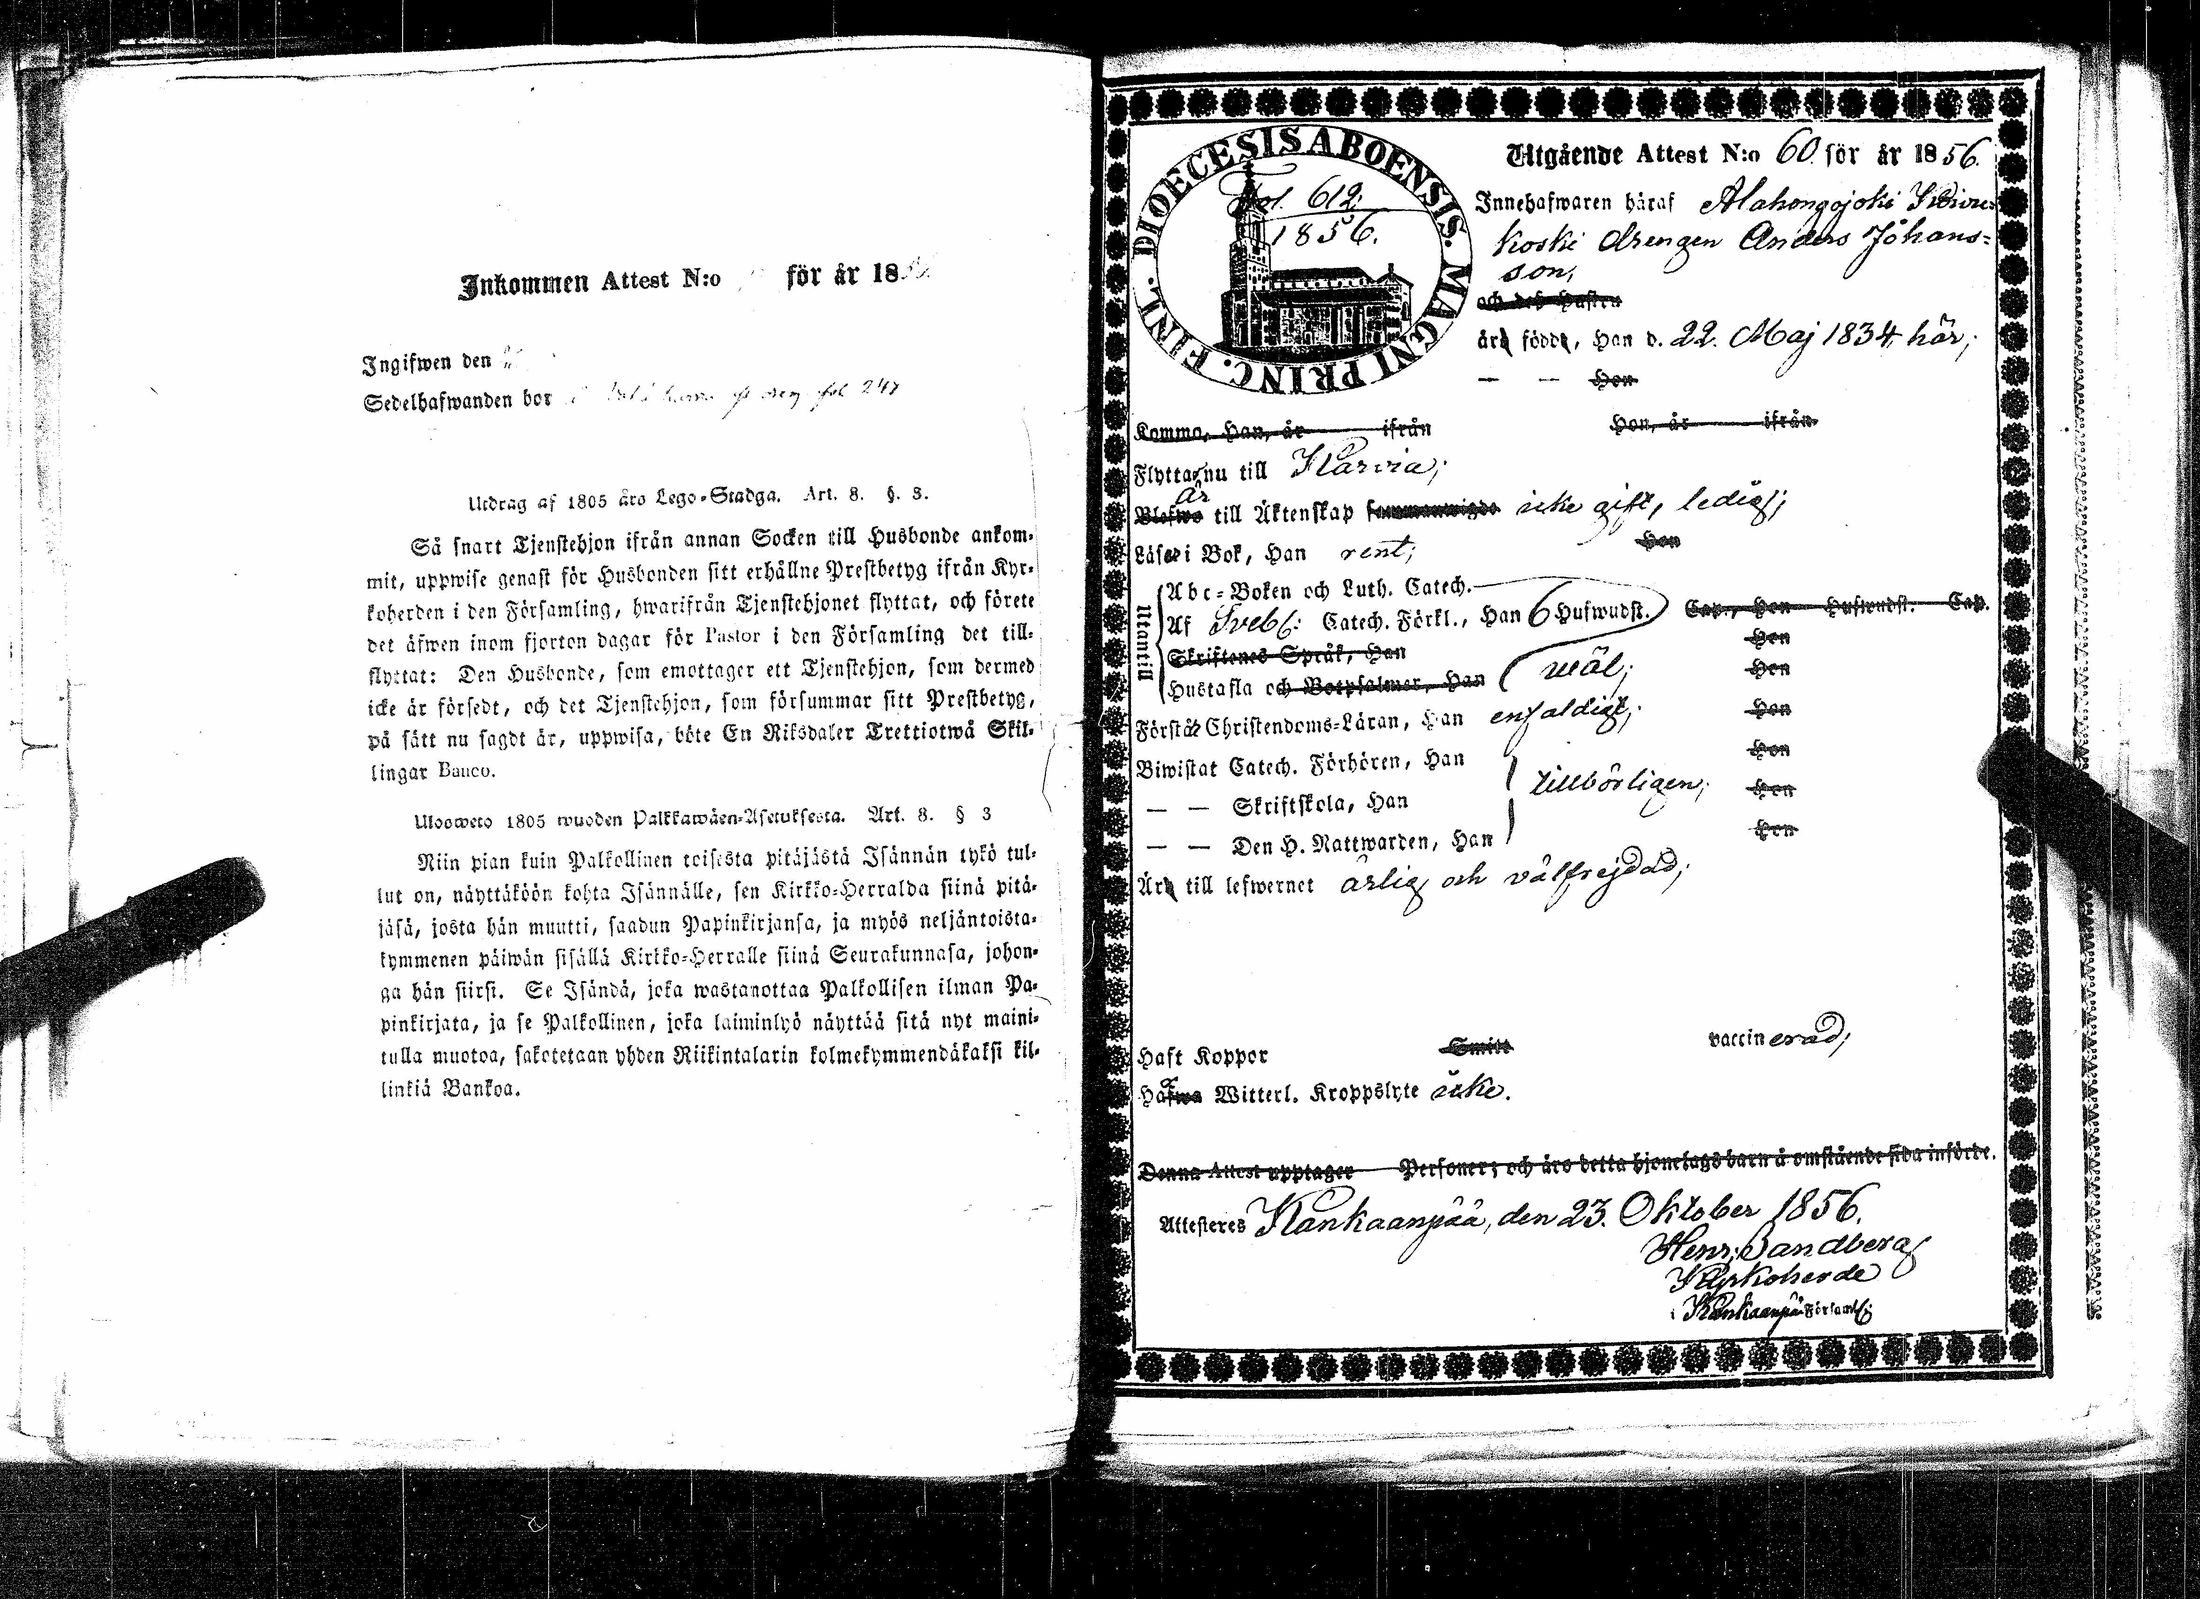 Inkommen Attest N:o för år 18
Ingifwen den
Sedelhafwanden bor fol 247
Utdrag af 1805 års Lego-Stadga. Art. 8. §. 3.
Så snart Tjenstehjon ifrån annan Socken till Husbonde ankom-
mit, uppwise genast för Husbonden sitt erhållne Prestbetyg ifrån Kyr-
koherden i den Församling, hwarifrån Tjenstehjonet flyttat, och förete
det äfwen inom fjorton dagar för Pastor i den Församling det till-
flyttat: Den Husbonde, som emottager ett Tjenstehjon, som dermed
icke är försedt, och det Tjenstehjon, som försummar sitt Prestbetyg,
på sätt nu sagdt är, uppwisa, böte En Riksdaler Trettiotwå Skil-
lingar Banco.
Uloosweto 1805 wuoden Palkkawäen-Asetuksesta. Art. 8. § 3
Niin pian kuin Palkollinen toisesta pitäjästä Isännän tykö tul-
lut on, näyttäköön kohta Isännälle, sen Kirkko-Herralda siinä pitä-
jäsä, josta hän muutti, saadun Papinkirjansa, ja myös neljäntoista-
kymmenen päiwän sisällä Kirkko-Herralle siinä Seurakunnasa, johon-
ga hän siirsi. Se Isändä, joka wastanottaa Palkollisen ilman Pa-
pinkirjata, ja se Palkollinen, joka laiminlyö näyttää sitä nyt maini-
tulla muotoa, sakotetaan yhden Riikintalarin kolmekymmendäkaksi kil-
linkiä Bankoa.
DIOECESIS ABOENSIS. MAGNI PRINC. FINL.
Fol. 612.
1856.
Utgående Attest N:o 60 för år 1856.
Innehafwaren häraf Alahongojoki
koski drengen Anders Johans-
son,
och deß Hustru
äro födde, Han d. 22. Maj 1834, här;
— — Hon
Komma, Han, år ifrån Hon, år ifrån
Flytta nu till Karvia;
är
Blefwo till Äktenskap sammanwigde icke gift, ledig;
Läser i Bok, Han rent; Hon
Utantill
Abc-Boken och Luth. Catech.
Af Sveb.: Catech. Förkl., Han 6 Hufwudst. Cap., Hon Hufwudst. Cap.
Skriftenes Språk, Han Hon
Hustafla och Botpsalmer, Han wäl; Hon
Förstår Christendoms-Läran, Han enfaldigt; Hon
Biwistat Catech. Förhören, Han Hon
— — Skriftskola, Han tillbörligen; Hon
— — Den H. Nattwarden, Han Hon
Äro till lefwernet ärlig och välfrejdad;
Haft Koppor Smitt vaccinerad;
Hafwa Witterl. Kroppslyte icke.
Denna Attest upptager Personer; och äro detta hjonelags barn å omstående sida införde.
Attesteres Kankaanpää, den 23. Oktober 1856.
Henr. Sandberg
Kyrkoherde
i Kankaanpää Församl.